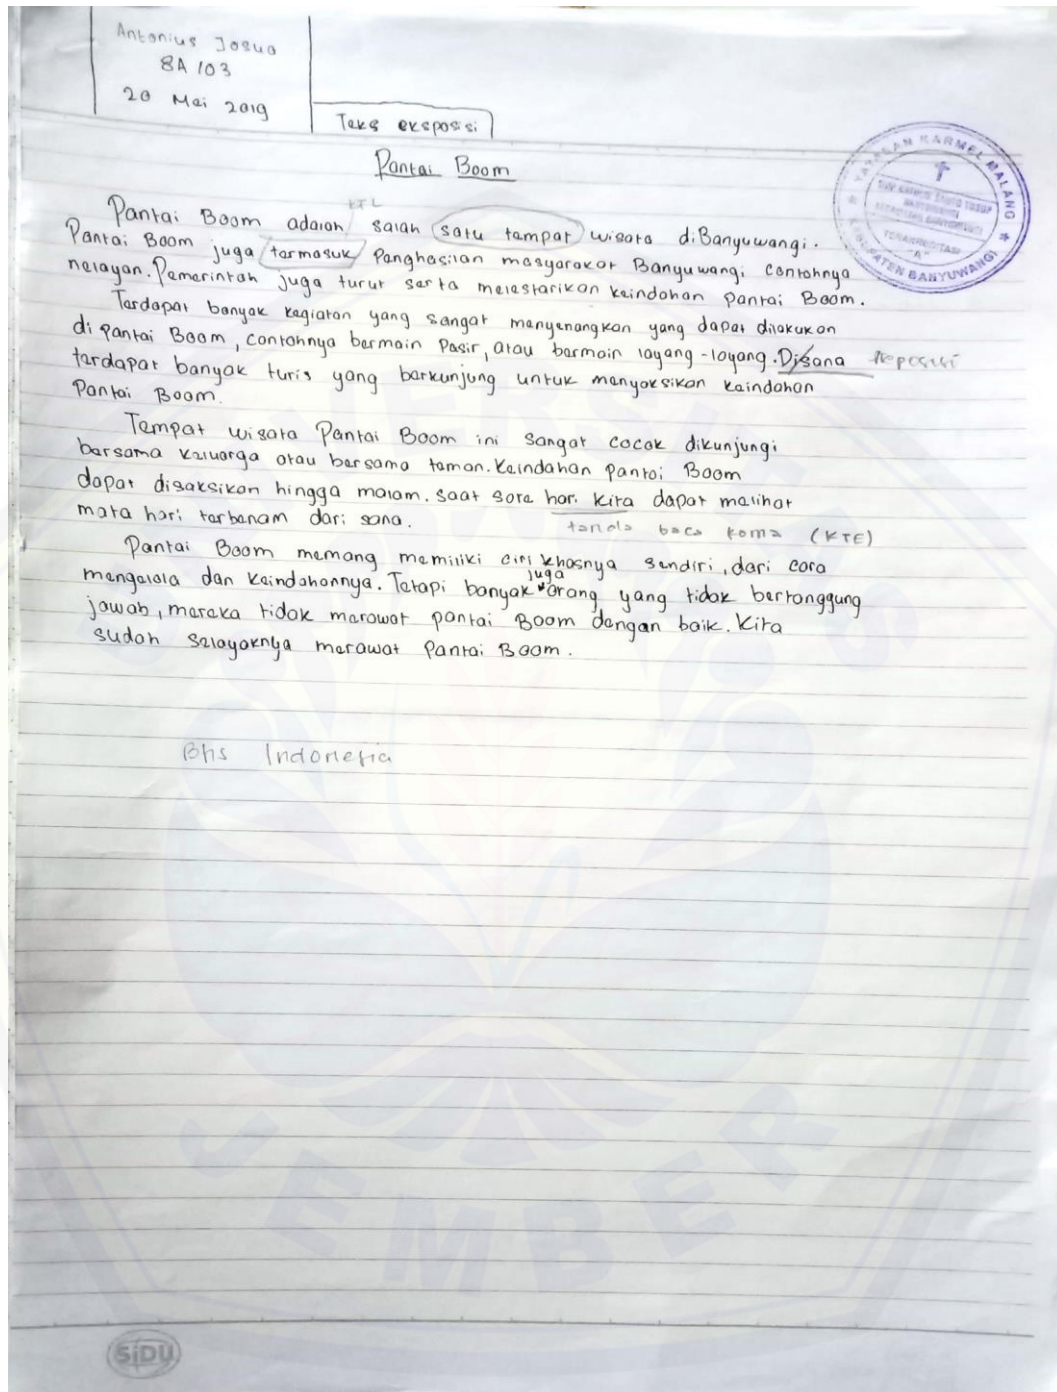 Antonius Josua
8A /03
20 Mei 2019
Teks eksposisi
Pantai Boom
KTL
Pantai Boom adalah salah satu tempat wisata diBanyuwangi.
Pantai Boom juga termasuk Penghasilan masyarakat Banyuwangi contohnya
nelayan. Pemerintah juga turut serta melestarikan keindahan Pantai Boom.
Terdapat banyak kegiatan yang sangat menyenangkan yang dapat dilakukan
di pantai Boom, contohnya bermain Pasir, atau bermain layang-layang. Disana
terdapat banyak turis yang berkunjung untuk menyaksikan keindahan
Pantai Boom.
Tempat wisata Pantai Boom ini sangat cocok dikunjungi
bersama keluarga atau bersama teman. Keindahan pantai Boom
dapat disaksikan hingga malam. saat sore hari kita dapat melihat
mata hari terbenam dari sana.
tanda baca koma (KTE)
Pantai Boom memang memiliki ciri khasnya sendiri, dari cara
mengelola dan keindahannya. Tetapi banyak juga orang yang tidak bertanggung
jawab, mereka tidak merawat pantai Boom dengan baik. Kita
sudah selayaknya merawat Pantai Boom.
Bhs Indonesia
YAYASAN KARMEL MALANG
KABUPATEN BANYUWANGI
TERAKREDITASI
"A"
JEMBER
SiDU